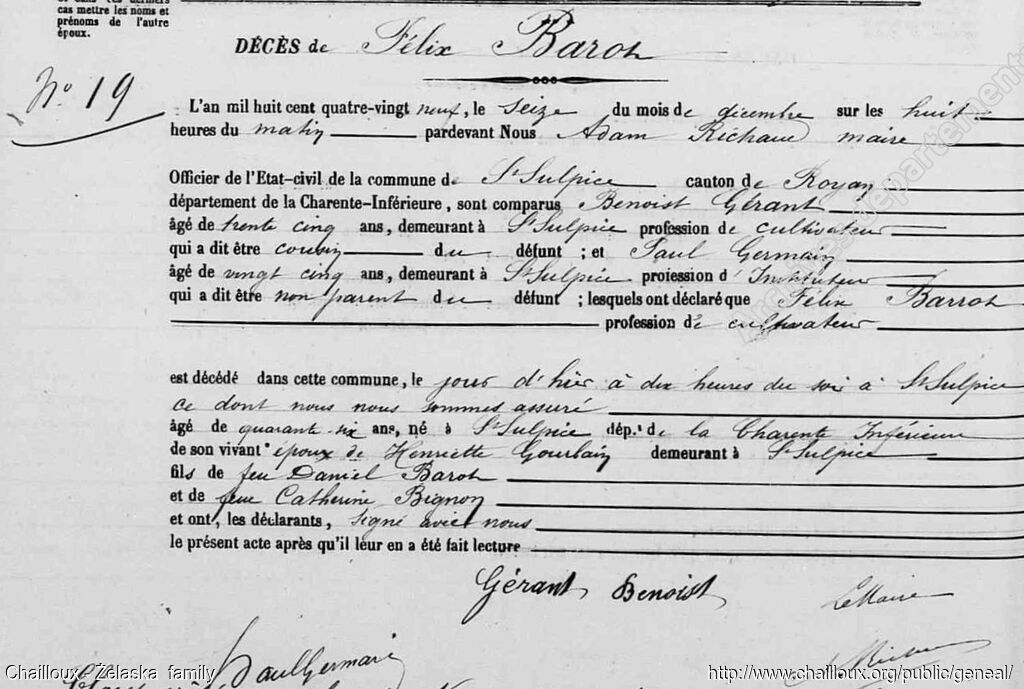 cas mettre les noms et
prénoms de l'autre
époux.
DÉCÈS de Félix Barot
N° 19
L'an mil huit cent quatre-vingt neuf, le seize du mois de décembre sur les huit
heures du matin pardevant Nous Adam Richaud maire
Officier de l'Etat-civil de la commune de St Sulpice canton de Royan
département de la Charente-Inférieure, sont comparus Benoist Gérant
âgé de trente cinq ans, demeurant à St Sulpice profession de cultivateur
qui a dit être cousin du défunt ; et Paul Germain
âgé de vingt cinq ans, demeurant à St Sulpice profession d'Instituteur
qui a dit être non parent du défunt ; lesquels ont déclaré que Félix Barrot
profession de cultivateur
est décédé dans cette commune, le jour d'hier à dix heures du soir à St Sulpice
ce dont nous nous sommes assuré
âgé de quarante six ans, né à St Sulpice dép.t de la Charente Inférieure
de son vivant époux de Henriette Gourbain demeurant à St Sulpice
fils de feu Daniel Barot
et de feue Catherine Bignon
et ont, les déclarants, signé avec nous
le présent acte après qu'il leur en a été fait lecture
Gérant Benoist Le Maire
Paul Germain
Chailloux - Zelaska family http://www.chailloux.org/public/geneal/